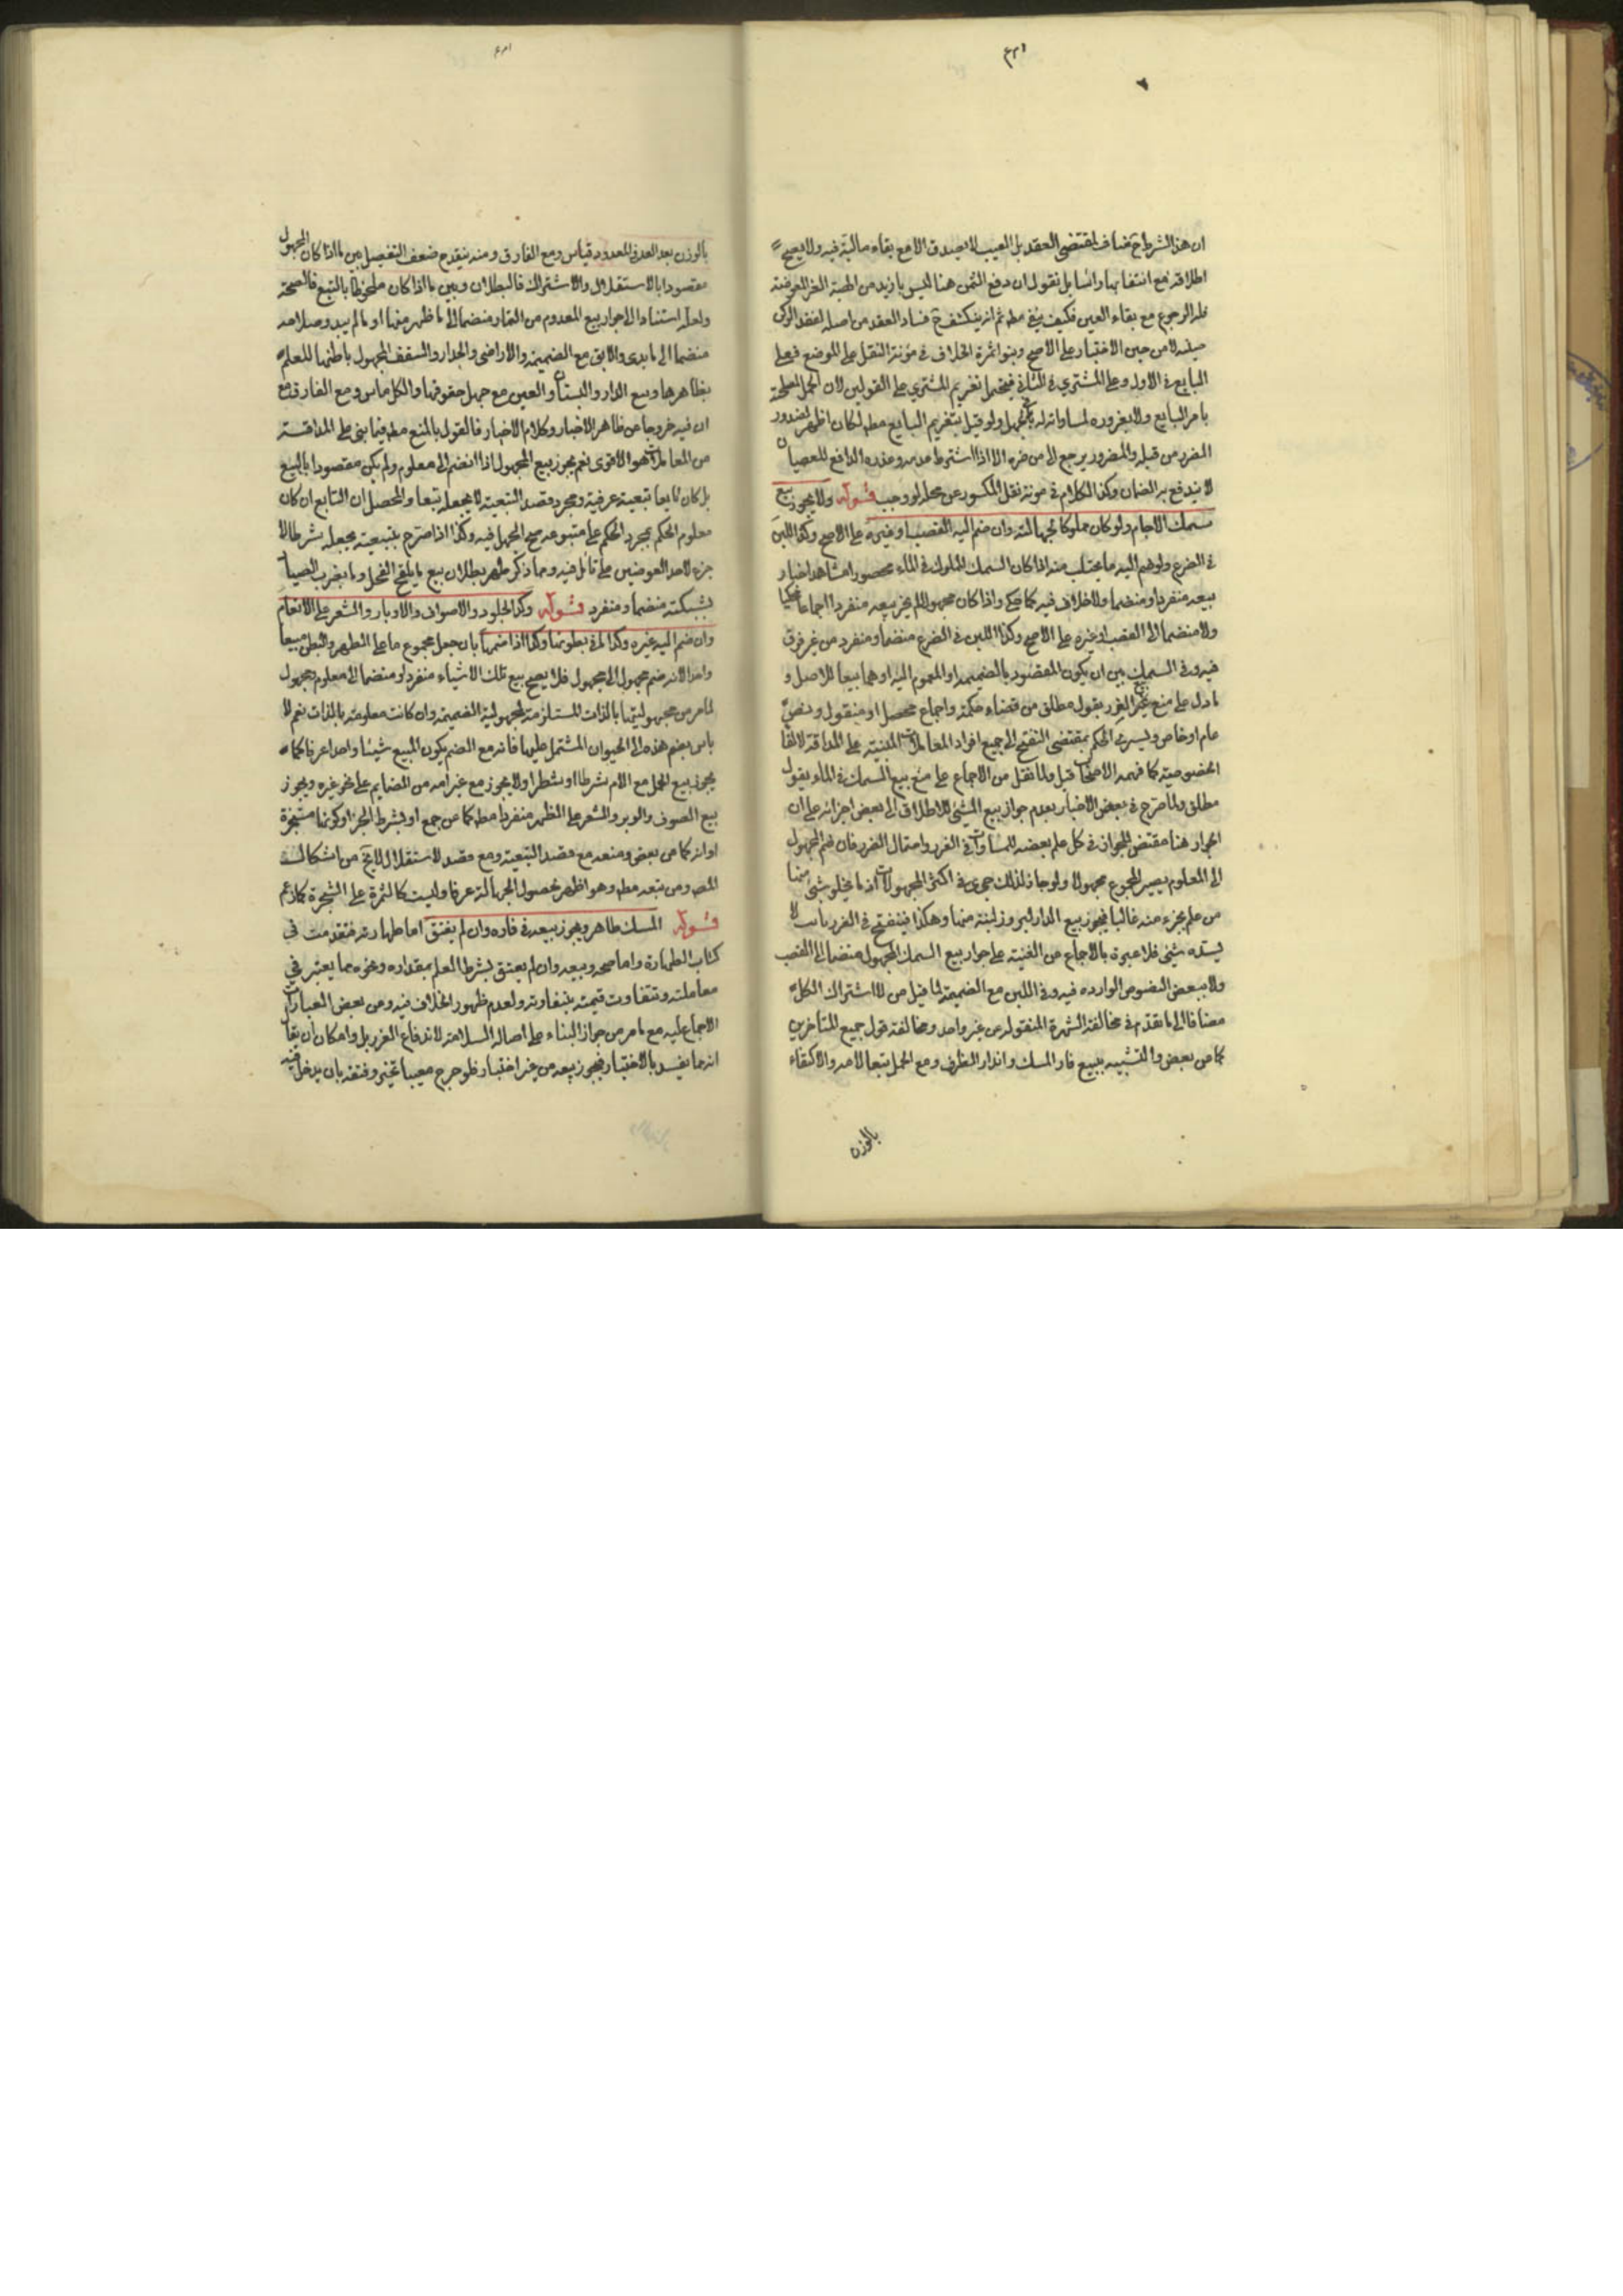 ان هذا الشرط ح مناف لمقتضى العقد بل العيب لا يصدق الا مع بقاء مالية فيه ولا يصح
اطلاقه مع انتفائها راسا بل نقول ان دفع الثمن هنا ليس بازيد من الهبة الغير المعوضة
فله الرجوع مع بقاء العين فكيف ينفى مطه ثم انه ينكشف ح فساد العقد من اصله لفقد الركن
حينئذ لا من حين الاختبار على الاصح وبنوا ثمرة الخلاف في مؤنة النقل على الموضع فعلى
البايع في الاول وعلى المشترى في الثاني فيحتمل تغريم المشتري على القولين لان الحمل لمصلحته
بامر البايع ولا بغروره لمساواته له في الجهل ولو قيل بتغريم البايع مطه لكان اظهر لصدور
الغرر من قبله والمغرور يرجع الى من غره الا اذا اشترط عدمه وعذره الدافع للعصيان
لا يندفع به الضمان وكذا الكلام في مونة نقل المكسور عن محله لو وجب قوله ولا يجوز بيع
سمك الاجام ولو كان مملوكا لجهالته وان ضم اليه القصب او غيره على الاصح وكذا اللبن
في الضرع ولو ضم اليه ما يحتلب منه اذا كان السمك المملوك في الماء محصورا مشاهدا جاز
بيعه منفردا ومنضما ولا خلاف فيه كما حكي واذا كان مجهولا لم يجز بيعه منفردا اجماعا محكيا
ولا منضما الى القصب او غيره على الاصح وكذا اللبن في الضرع منضما ومنفرد من غير فرق
فيه وفي السمك بين ان يكون المقصود بالضميمه او المضموم اليه او هما بيعا للاصل و
ما دل على منع بيع الغرر بقول مطلق من قضاء حكمة واجماع محصل او منقول ونص
عام او خاص ويسرى الحكم بمقتضى التنقيح الى جميع افراد المعاملات المبنية على المداقة لالغاء
الخصوصية كما فهمه الاصحاب قبل ولما نقل من الاجماع على منع بيع السمك في الماء بقول
مطلق ولما صرح في بعض الاخبار بعدم جواز بيع الشئ للاطلاق الى بعض اجزائه على ان
الجواز هنا مقتض للجواز في كل ما علم بعضه للمساوات في الغرر واحتمال الغرر فان ضم المجهول
الى المعلوم يصير المجموع مجهولا ولو جاز لذلك جرى في اكثر المجهولات اذ ما يخلو شئ منها
من علم بجزء منه غالبا فيجوز بيع الدار لبروز لبنة منها وهكذا فينفتح في الغرر باب لا
يسده شئ فلا عبرة بالاجماع من الغنية على جواز بيع السمك المجهول منضما الى القصب
ولا ببعض النصوص الوارده فيه وفي اللبن مع الضميمة لما قيل من لا اشتراك الكل
مضافا الى ما تقدم في مخالفته الشهرة المنقولة عن غير واحد ومخالفته قول جميع المتاخرين
كما عن بعض والتشبيه ببيع فار المسك واندار الظرف ومع الحمل تبعا لامه والاكتفاء
بالوزن
بالوزن بعد العد في المعدود قياس ومع الفارق ومنه ينقدح ضعف التفصيل بين ما اذا كان المجهول
مقصودا بالاستقلال والاشتراك فالبطلان وبين ما اذا كان ملحوظا بالتبع فالصحة
ولعله استنادا الى جواز بيع المعدوم من الثمار منضما الى ما ظهر منها او ما لم يبد وصلاحه
منضما الى ما بدى والابق مع الضميمة والاراضى والجدار والسقف المجهول باطنها للعلم
بظاهرها وبيع الدار والبستان والعين مع جهل حقوقها والكل ماس ومع الفارق مع
ان فيه خروجا عن ظاهر الاخبار وكلام الاخبار فالقول بالمنع مطه فيما بنى على المداقة
من المعاملات هو الاقوى نعم يجوز بيع المجهول اذا انضم الى معلوم ولم يكن مقصودا بالبيع
بل كان تابعا تبعية عرفية ومجرد قصد التبعية لا يجعله تبعا والمحصل ان التابع ان كان
معلوم الحكم بمجرد الحكم على متبوعه صح الجهل فيه وكذا اذا صرح بتبعيته بجعله شرطا لا
جزء لاحد العوضين على تامل فيه ومما ذكر ظهر بطلان بيع ما يلقح الفحل وما يضرب الصياد
بشبكته منضما ومنفرد قوله وكذا الجلود والاصواف والاوبار والشعر على الانعام
وان ضم اليه غيره وكذا ما في بطونها وكذا اذا ضمها بان جعل مجموع ما على الظهر والبطن مبيعا
واحدا لانه ضم مجهول الى مجهول فلا يصح بيع تلك الاشياء منفردا ومنضما الى معلوم مجهول
لما مر من مجهوليتها بالذات المستلزمة لمجهولية الضميمة وان كانت معلومة بالذات نعم لا
باس بضم هذه الى الحيوان المشتمل عليها فانه مع الضم يكون المبيع شيئا واحدا عرفا كما
يجوز بيع الحمل مع الام شرطا او شطرا ولا يجوز مع غير امه من الضمايم على نحو غيره ويجوز
بيع الصوف والوبر والشعر على الظهر منفردا مطه كما عن جمع او بشرط الجز او كونها مستجزة
اوانه كما عن بعض ومنعه مع قصد التبعية ومع قصد الاستقلال لا يخ من اشكال
المصه ومن تبعه مطه وهو اظهر لحصول الجهالة عرفا وليست كالثمرة على الشجرة كما زعم
قوله المسك طاهر ويجوز بيعه في فاره وان لم يفتق اما طهارته فتقدمت في
كتاب الطهارة واما صحه وبيعه وان لم يفتق بشرط العلم بمقداره وغيره مما يعتبر في
معاملته وتتفاوت قيمته بتفاوته ولعدم ظهور الخلاف فيه ومن بعض العبارات
الاجماع عليه مع ما مر من جواز البناء على اصالة السلامة لاندفاع الغرر بل وامكان ان يقال
انه مما يفسد بالاختبار فيجوز بيعه من غير اختبار فلو خرج معيبا تخير وفتقه بان يدخل فيه